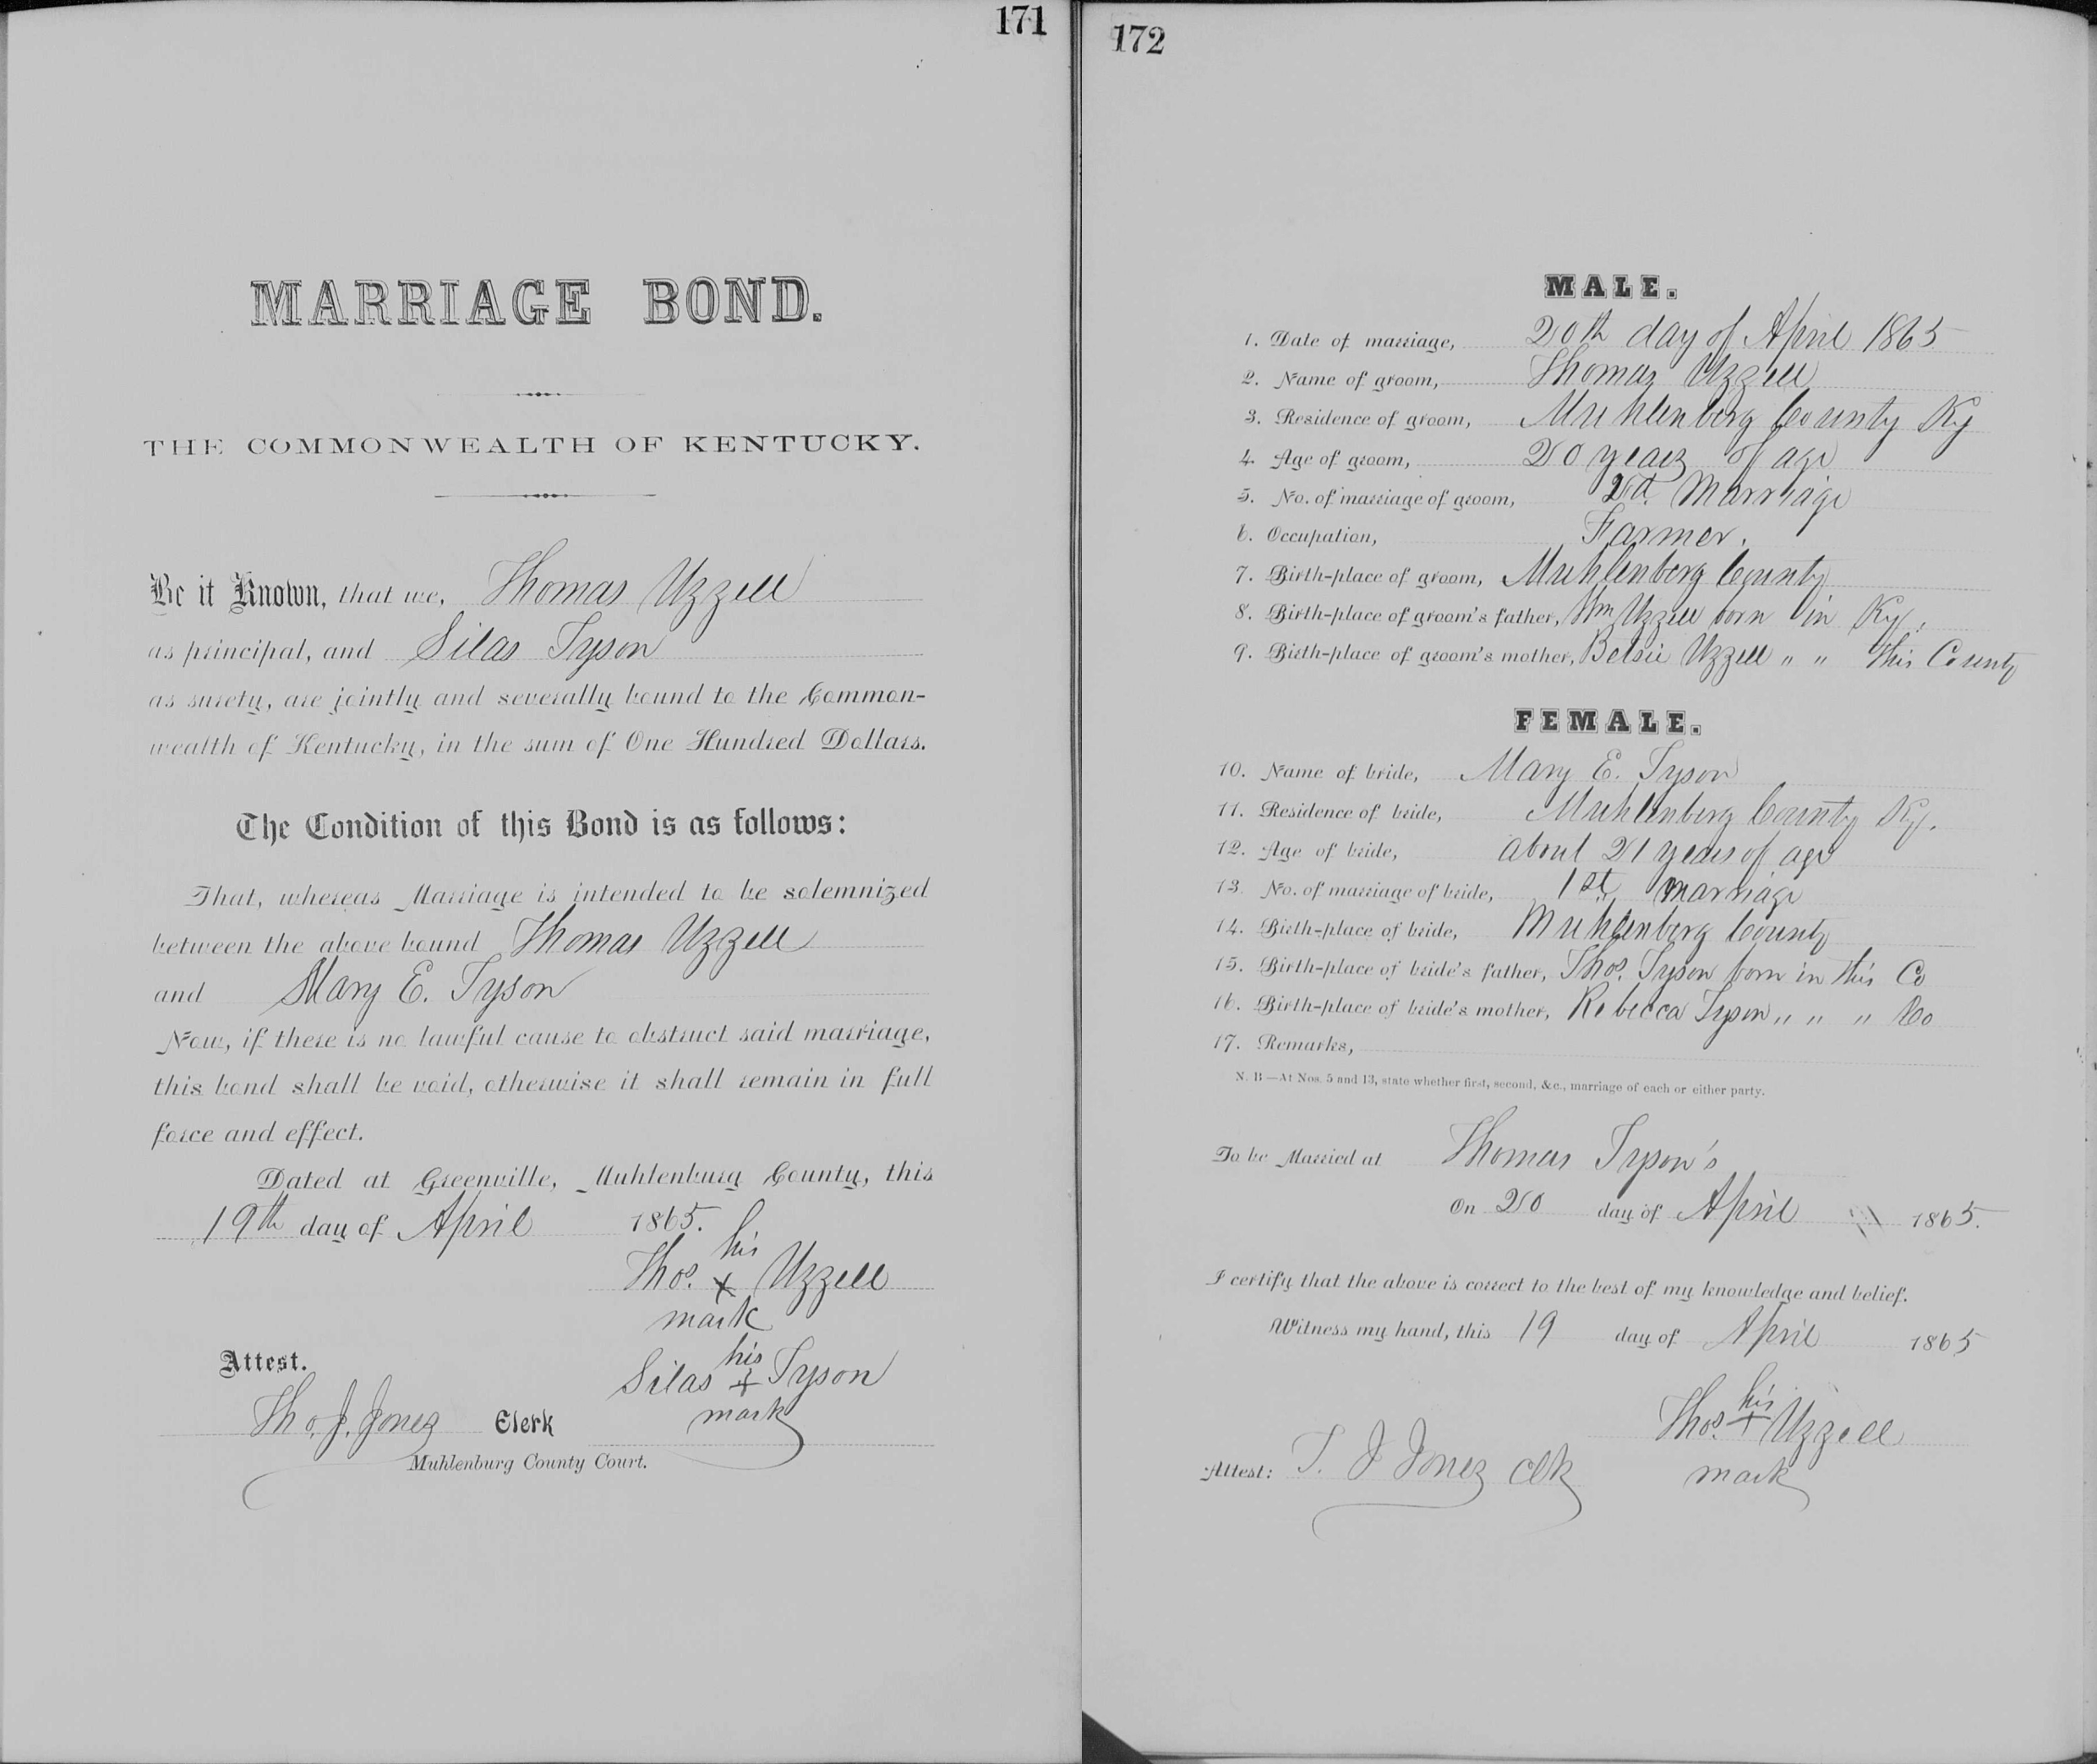 171
MARRIAGE BOND.
THE COMMONWEALTH OF KENTUCKY.
Be it Known, that we, Thomas Uzzell
as principal, and Silas Tyson
as surety, are jointly and severally bound to the Common-
wealth of Kentucky, in the sum of One Hundred Dollars.
The Condition of this Bond is as follows:
That, whereas Marriage is intended to be solemnized
between the above bound Thomas Uzzell
and Mary E. Tyson
Now, if there is no lawful cause to obstruct said marriage,
this bond shall be void, otherwise it shall remain in full
force and effect.
Dated at Greenville, Muhlenburg County, this
19th day of April 1865.
his
Thos. x Uzzell
mark
his
Silas + Tyson
mark
Attest.
Tho. J. Jones Clerk
Muhlenburg County Court.
172
MALE.
1. Date of marriage, 20th day of April 1865
2. Name of groom, Thomas Uzzell
3. Residence of groom, Muhlenberg County Ky
4. Age of groom, 20 years of age
5. No. of marriage of groom, 2d. Marriage
6. Occupation, Farmer.
7. Birth-place of groom, Muhlenberg County
8. Birth-place of groom's father, Wm Uzzell born in Ky.
9. Birth-place of groom's mother, Betsie Uzzell " " this County
FEMALE.
10. Name of bride, Mary E. Tyson
11. Residence of bride, Muhlenberg County Ky.
12. Age of bride, about 21 years of age
13. No. of marriage of bride, 1st marriage
14. Birth-place of bride, Muhlenberg County
15. Birth-place of bride's father, Thos. Tyson born in this Co
16. Birth-place of bride's mother, Rebecca Tyson " " " Co
17. Remarks,
N. B—At Nos. 5 and 13, state whether first, second, &c., marriage of each or either party.
To be Married at Thomas Tyson's
On 20 day of April 1865.
I certify that the above is correct to the best of my knowledge and belief.
Witness my hand, this 19 day of April 1865
his
Thos. + Uzzell
mark
Attest: T. J Jones Clk